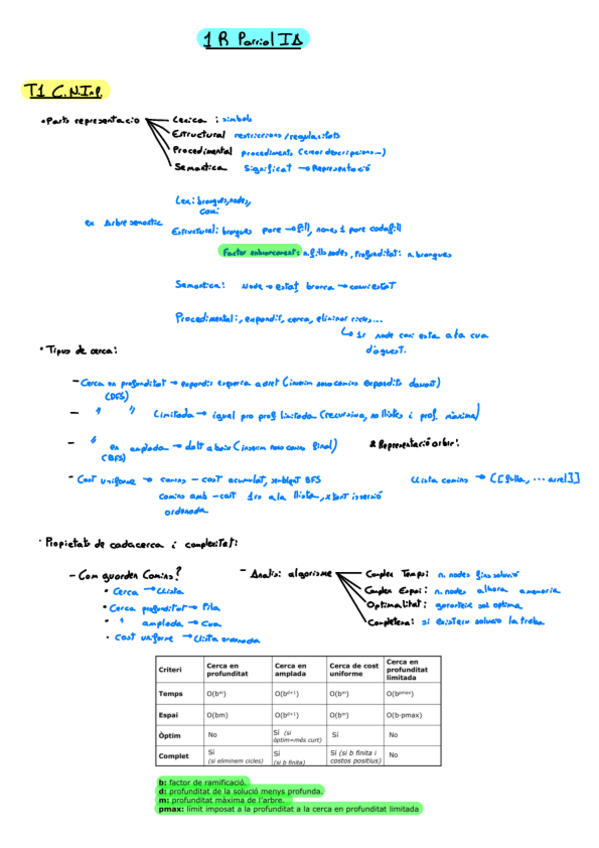 1R Parcial IA
T1 C.N.Inf
• Parts representacio
Lexica : simbols
Estructural restriccions/regularitats
Procedimental procediments (crear descripcions...)
Semantica Significat → Representació
Lex: branques, nodes,
camí
ex Arbre semantic
Estructural: branques pare → fill, nomes 1 pare cada fill
Factor enbrancament: n. fills nodes, Profunditat: n. branques
Semantica: Node → estat, branca → canvi estat
Procedimental:, expandir, cerca, eliminar cicles...
↳ 1r node cami esta a la cua
d'aquest.
• Tipus de cerca:
- Cerca en profunditat → expandir esquerra a dret (inserim nous camins expandits davant)
(DFS)
- " " Limitada → igual pro prof limitada (recursiva, no llistes i prof. màxima)
- " en amplada → dalt a baix (inserim nous camins final)
(BFS)
& Representació arbir:
- Cost uniforme → camins - cost acumulat, semblant BFS
camins amb - cost 1rs a la llista, x tant inserció
ordenada
Llista camins → [[fulla, ... arrel]]
• Propietats de cada cerca i complexitat:
- Com guarden Camins?
• Cerca → Llista
• Cerca profunditat → Pila
• " amplada → Cua
• Cost uniforme → Llista ordenada
- Analisi algorisme
Complex Temps: n. nodes fins solució
Complex Espai: n. nodes alhora a memoria
Optimalitat: garanteix sol optima
Completesa: si existeix solucio la troba
Criteri Cerca en profunditat Cerca en amplada Cerca de cost uniforme Cerca en profunditat limitada
Temps O(bᵐ) O(bᵈ⁺¹) O(bᵐ) O(bᵖᵐᵃˣ)
Espai O(bm) O(bᵈ⁺¹) O(bᵐ) O(b·pmax)
Òptim No Sí (si òptim=més curt) Sí No
Complet Sí (si eliminem cicles) Sí (si b finita) Sí (si b finita i costos positius) No
b: factor de ramificació.
d: profunditat de la solució menys profunda.
m: profunditat màxima de l'arbre.
pmax: límit imposat a la profunditat a la cerca en profunditat limitada